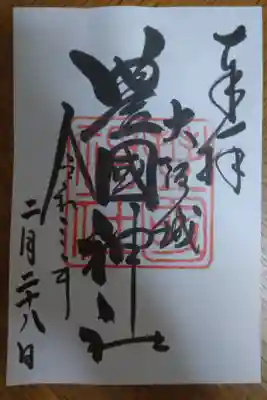 奉拝
大阪城
豊國神社
令和二年
二月二十八日